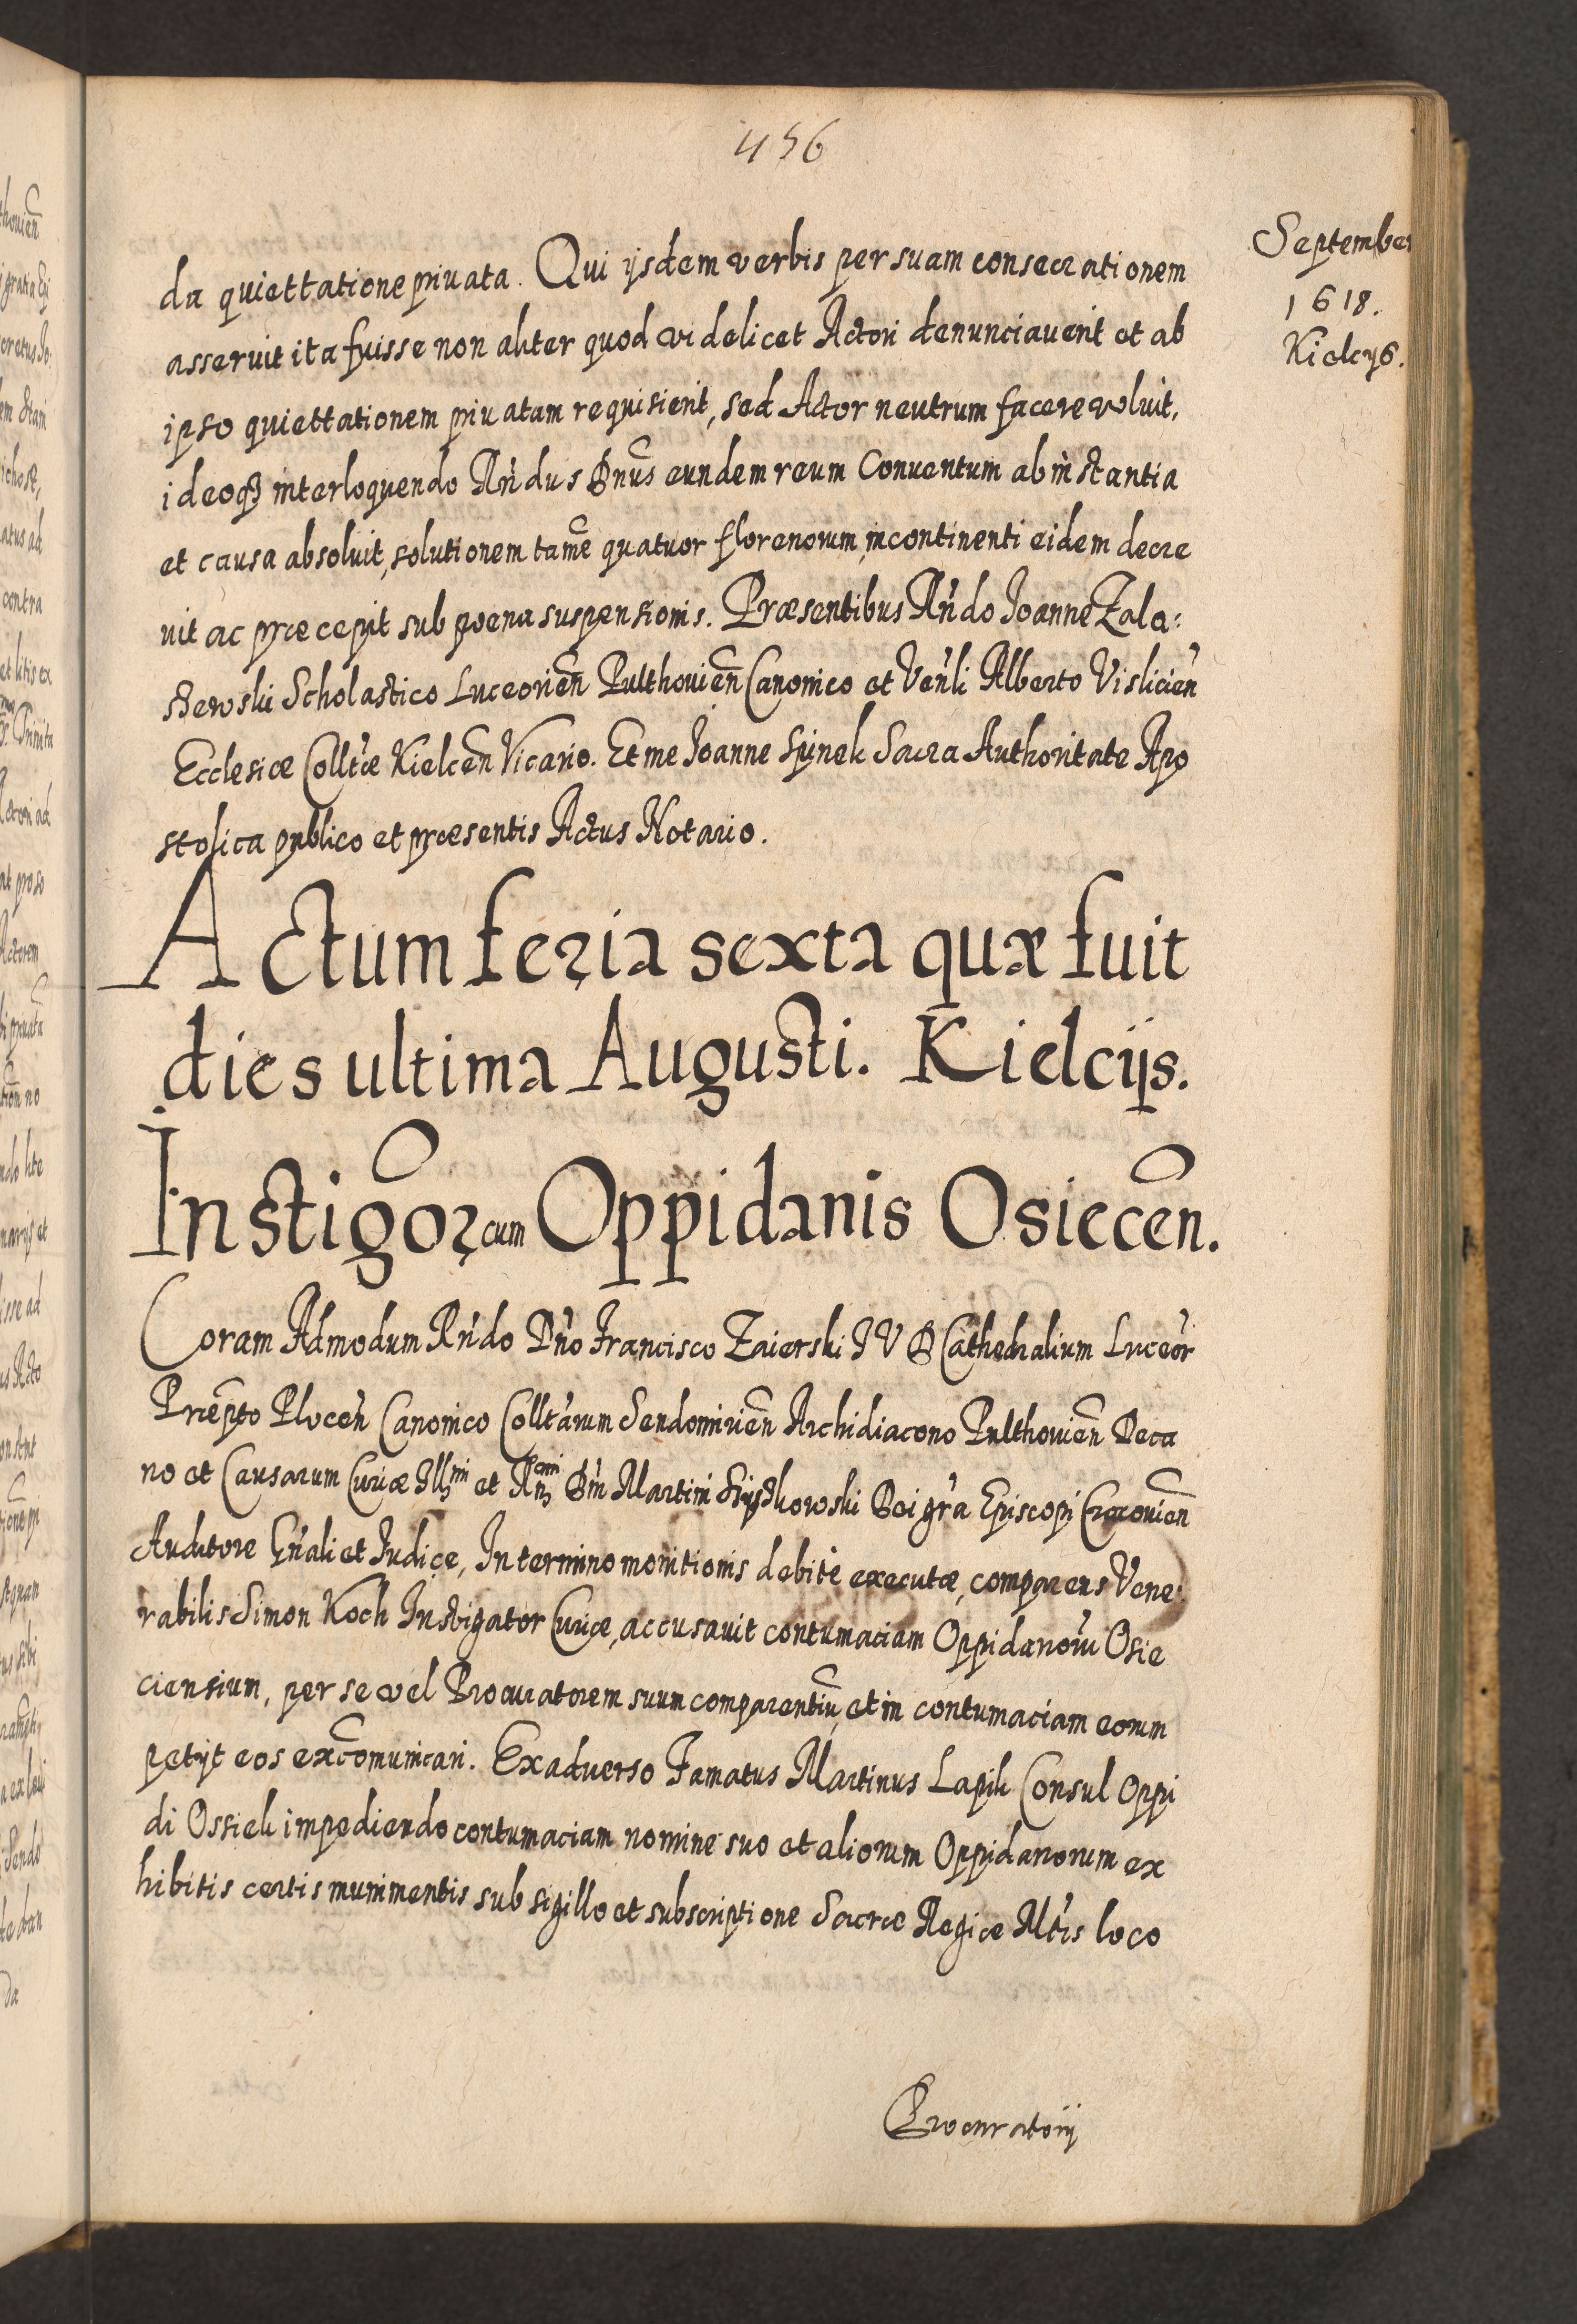 456
September
1618.
Kielcys.
da quiettatione priuata. Qui ijsdem verbis per suam consecrationem
asseruit ita fuisse non aliter quod videlicet Actori denunciauerit et ab
ipso quiettationem priuatam requisierit, sed Actor neutrum facere voluit,
ideoqȝ interloquendo Rńdus Dnūs eundem reum Conuentum ab instantia
et causa absoluit, solutionem tamē quatuor florenorum incontinenti eidem decre
uit ac præcepit sub pœna suspensionis. Præsentibus Rńdo Joanne Zala:
szewski Scholastico Luceorien̄ Pulthouien̄ Canonico et Venłi Alberto Vislicień
Ecclesiæ Colltæ Kielcen̄ Vicario. Et me Joanne Sijnek Sacra Authoritate Apo
stolica publico et præsentis Actus Notario.
Actum feria sexta quæ fuit
dies ultima Augusti. Kielcijs.
Instigōr cum Oppidanis Osiecen̄.
Coram Admodum Rńdo Dńo Francisco Zaierski I V D Cathedralium Luceoŕ
Præp̄to Plocen̄ Canonico Colltarum Sendomirien̄ Archidiacono Pulthouien̄ Deca
no et Causarum Curiæ Illmi et Rnmi Dńi Martini Szyszkowski Dei gŕa Episcopi Cracouien̄
Auditore Gńali et Judice, In termino monitionis debitè executæ, comparens Vene:
rabilis Simon Koch Instigator Curiæ, accusauit contumaciam Oppidanorū Osie
ciensium, per se vel Procuratorem suum comparentiū, et in contumaciam eorum
petijt eos excōmunicari. Exaduerso Famatus Martinus Lapik Consul Oppi
di Ossiek impediendo contumaciam nomine suo et aliorum Oppidanorum ex
hibitis certis munimentis sub sigillo et subscriptione Sacræ Regiæ Mtis loco
Procuratorij